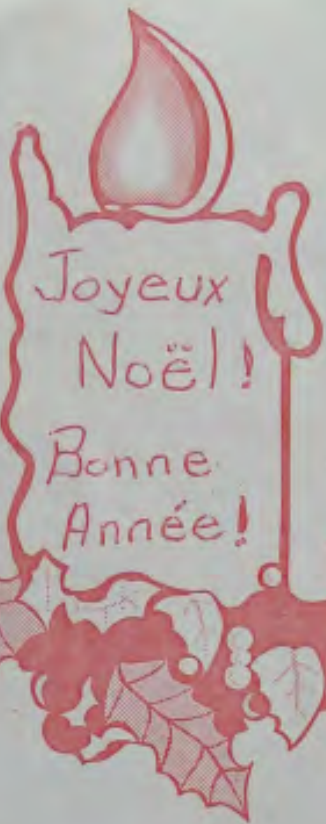 Joyeux
Noël!
Bonne
Année!